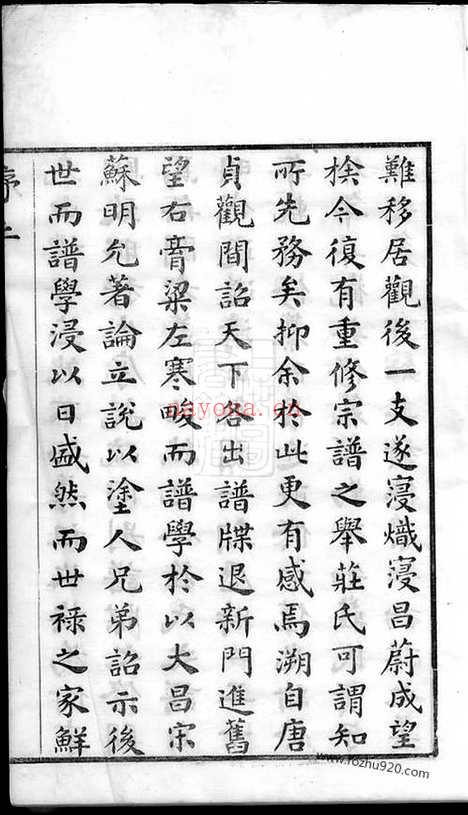 難移居觀後一支遂寖熾寖昌蔚成望
族今復有重修宗譜之舉莊氏可謂知
所先務矣抑余於此更有感焉溯自唐
貞觀間詔天下各出譜牒退新門進舊
望右膏粱左寒畯而譜學於以大昌宋
蘇明允著論立說以塗人兄弟詔示後
世而譜學浸以日盛然而世祿之家鮮
nayona.cn
www.fozhu920.com